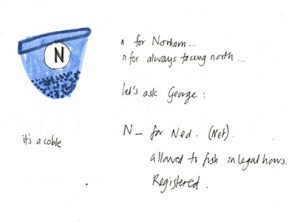 N
n for Norham...
n for always facing north...
let's ask George:
N_ for Ned. (Net).
allowed to fish in legal hours.
Registered.
it's a coble